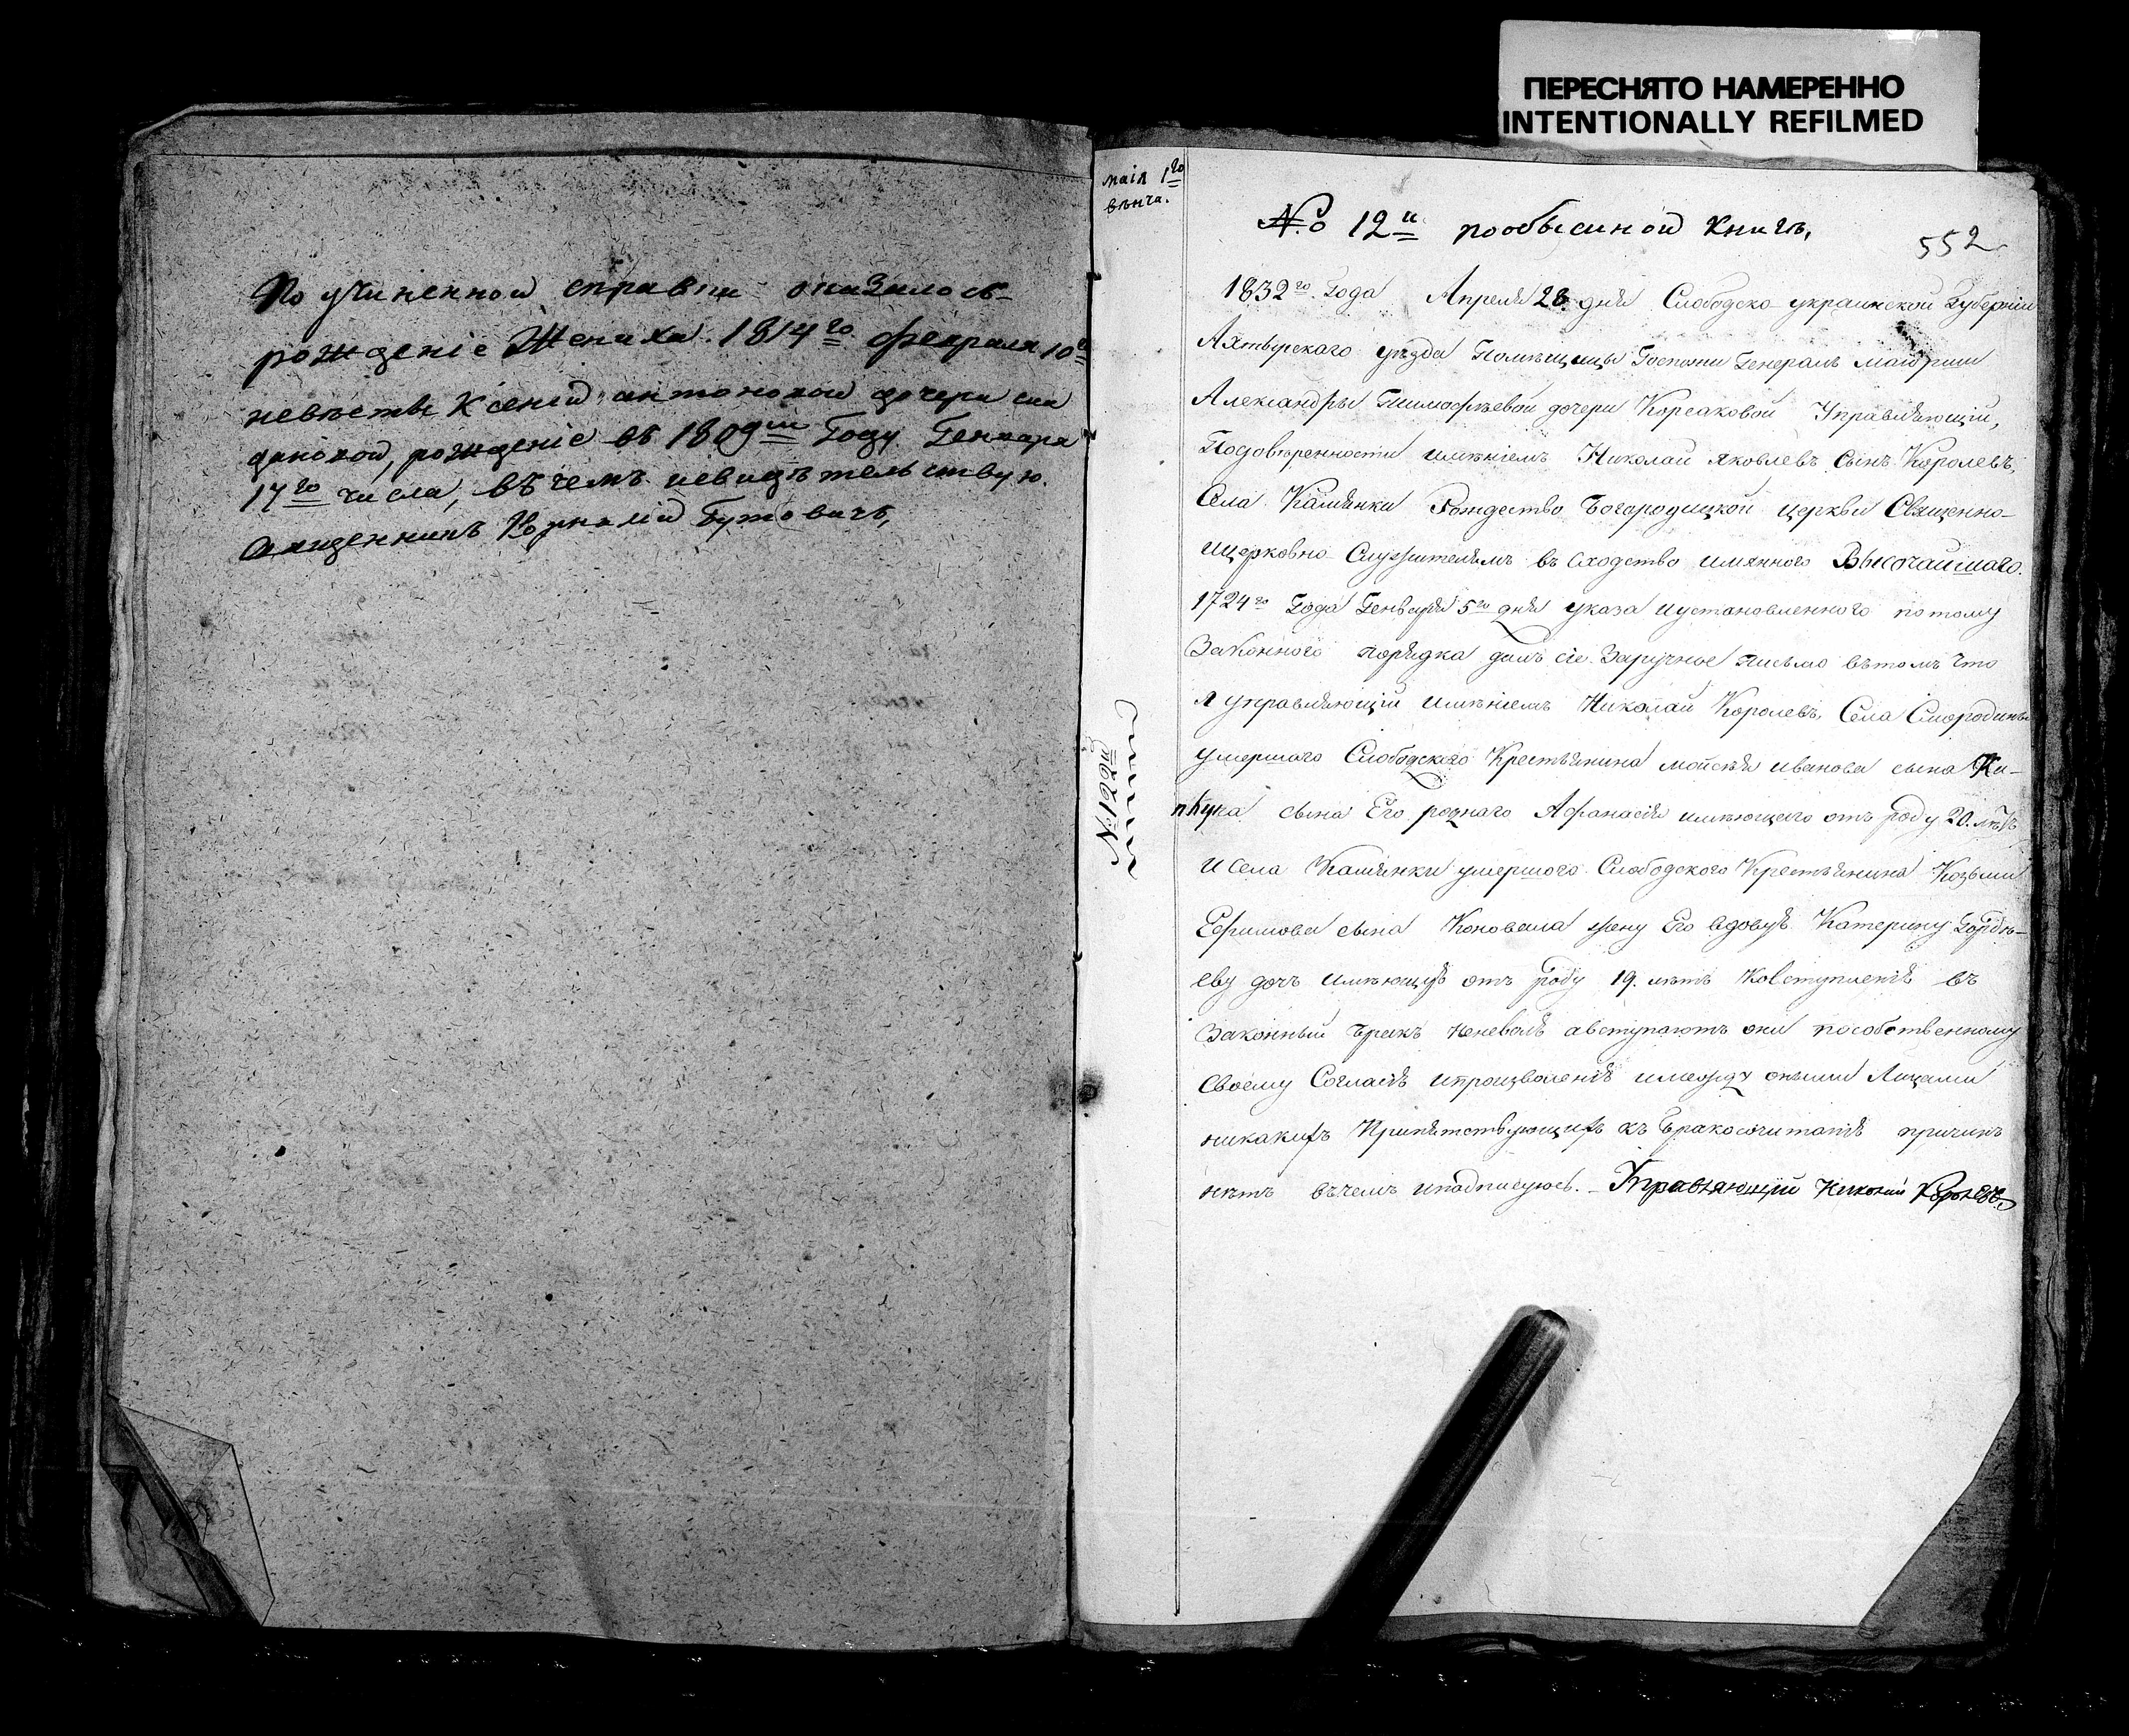 ПЕРЕСНЯТО НАМЕРЕННО
INTENTIONALLY REFILMED
По учиненной справки оказалось
рождение Жениха 1814го февраля 10го
невесты Ксении антоновой дочери
рождение въ 1809м Году Генваря
17го числа, въ чемъ и свидѣтельствую.
Священникъ Корнилий Бутовичъ,
Маія 1го
вѣнча.
№ 122й
№ 12й пообысиной книгѣ,
552
1832го Года Апреля 28 дня Слободско украинской Губерніи
Ахтырскаго уѣзда Помѣщицы Госпожи Генералъ маіорши
Александры Тимофѣевой дочери Корсаковой Управляющій,
Подовѣренности имѣніемъ Николай Яковлевъ Сынъ Королевъ,
Села Камянки Рождество Богородицкой церкви Священно-
ицерковно Служителямъ въ Сходство имянного Высочайшаго
1724го Года Генваря 5го дня указа иустановленного потому
Законного порядка далъ сіе Заручное письмо вътомъ что
я управляющій имѣніемъ Николай Королевъ, Села Смородина
умершаго Слободскаго Крестьянина мойсея иванова сына
сына Его роднаго Афанасія имѣющаго отъ роду 20. лѣтъ
и Села Камянки умершого Слободского Крестьянина Козьми
Ефимова сына Коновала жену Его вдову Катерину Гордѣ-
еву дочъ имѣющую отъ роду 19. лѣтъ Ковступленію въ
Законный бракъ Неневолю авступаютъ они пособственному
своему Согласію ипроизволенію имежду оными Лицами
никакихъ Припятствующихъ къ Бракосочитанію причинъ
нѣтъ вѣчемъ иподписуюсь. - Управляющій Николай Королевъ